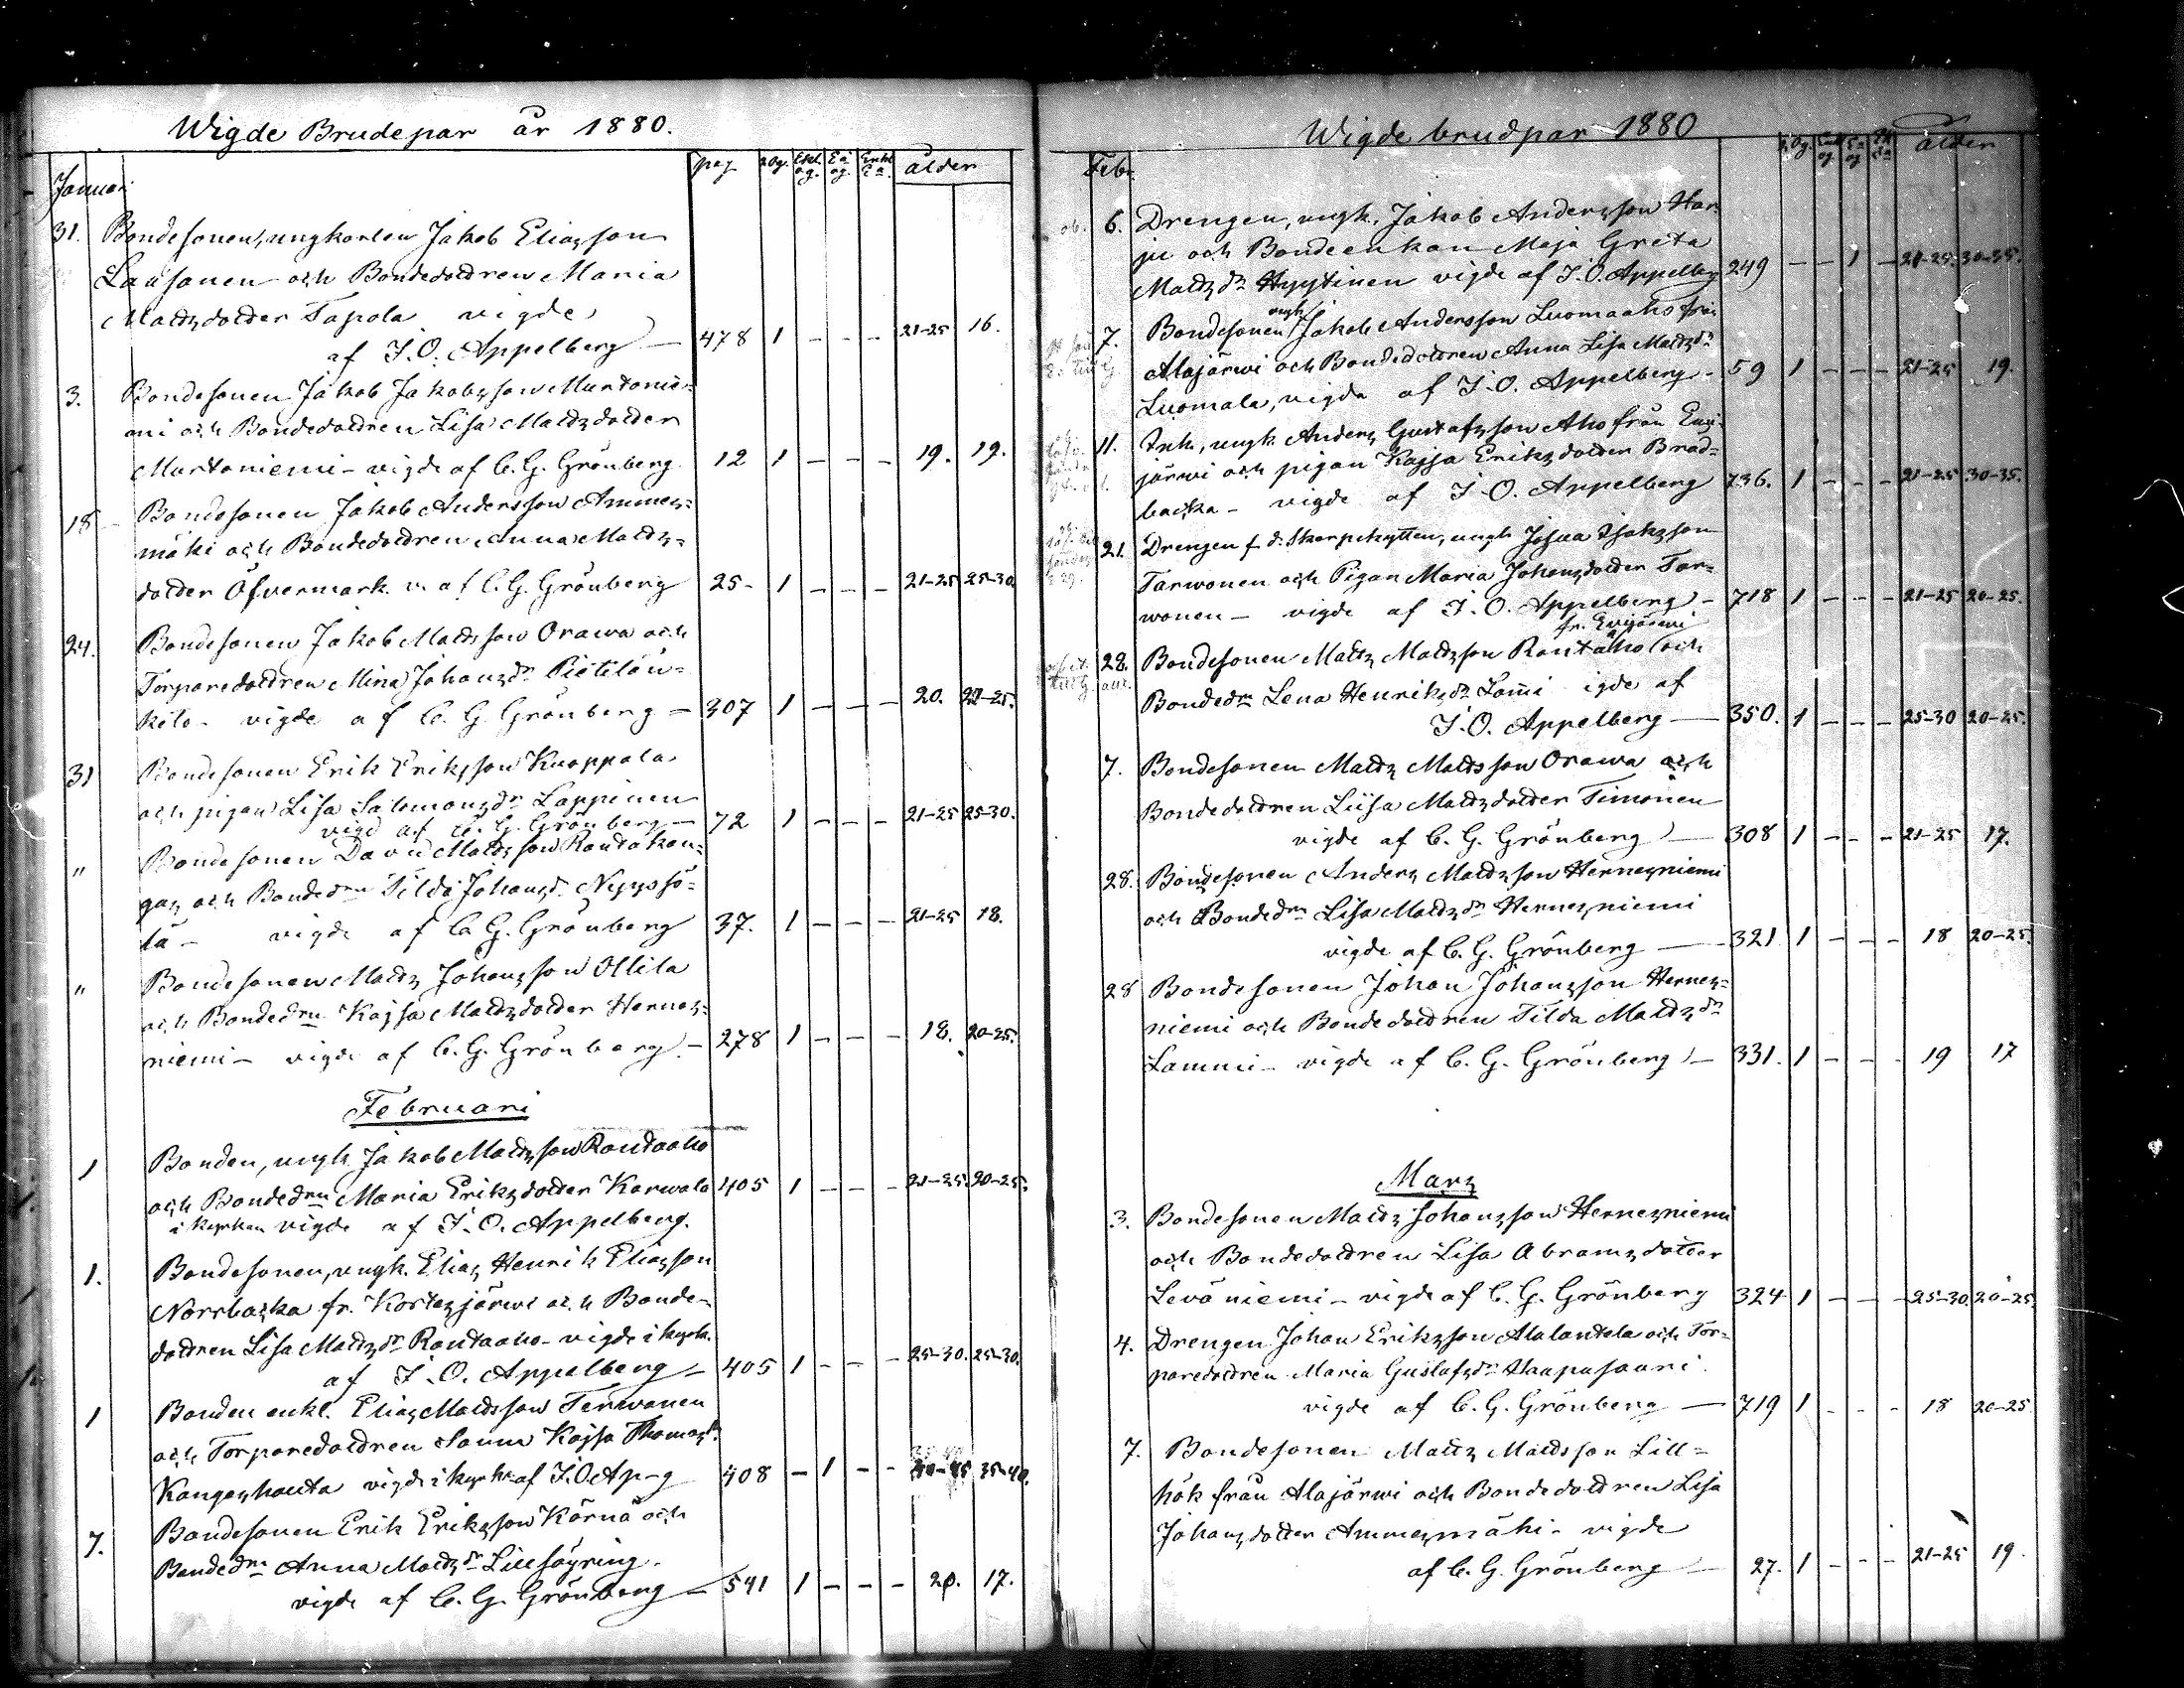 Wigde Brudepar år 1880.
Januari pag. 2 og. Enkl. og. Ea og. Enkl. Ea ålder
31. Bondesonen, ungkarlen Jakob Eliasson
Lausonen och Bondedottren Maria
Mattsdotter Tapola vigde
af J. O. Appelberg — 478 1 - - - 21-25 16.
3. Bondesonen Jakob Jakobsson Murtonie-
mi och Bondedottren Lisa Mattsdotter
Murtoniemi - vigde af C. G. Grönberg 12 1 - - - 19. 19.
18 Bondesonen Jakob Andersson Ammes-
mäki och Bondedottren Anna Matts-
dotter Öfvermark. v. af C. G. Grönberg 25 - 1 - - - 21-25 25-30.
24. Bondesonen Jakob Mattsson Orawa och
Torparedottren Mina Johansdr Pietilän-
keto - vigde af C. G. Grönberg - 307 1 - - - 20. 22-25.
31 Bondesonen Erik Eriksson Knoppala
och pigan Lisa Salomonsdr Lappinen
vigd af C. G. Grönberg - 72 1 - - - 21-25 25-30.
" Bondesonen David Mattsson Rautakan-
gas och Bondedrn Tilda Johansdr Nypssö-
lä - vigde af C. G. Grönberg 37. 1 - - - 21-25 18.
" Bondesonen Matts Johansson Ollila
och Bondedrn Kajsa Mattsdotter Hernes-
niemi - vigde af C. G. Grönberg - 278 1 - - - 18. 20-25.
Februari
1 Bonden, ungk Jakob Mattsson Rantaaho
och Bondedrn Maria Eriksdotter Karwala 405 1 - - - 21-25. 20-25.
i kyrkan vigde af J. O. Appelberg.
1. Bondesonen, ungk. Elias Henrik Eliasson
Norrbacka fr. Kortesjärwi och Bonde-
dottren Lisa Mattsdr Rantaaho - vigde i kyrk.
af J. O. Appelberg - 405 1 - - - 25-30. 25-30.
1 Bonden enkl. Elias Mattsson Terwonen
och Torparedottren Sanna Kajsa Thomasdr
Kangashauta vigde i kyrk. af J. O. Ap-g 408 - 1 - - 40-45 35-40.
7. Bondesonen Erik Eriksson Körnä och
Bondedrn Anna Mattsdr Lillsäyring.
vigde af C. G. Grönberg - 541 1 - - - 20. 17.
Wigde brudpar 1880
Febr. 2 Og. Enkl og. Ea og ålder
6. Drengen, ungk. Jakob Andersson Har-
ju och Bondeenkan Maja Greta
Mattsdr Hyytinen vigde af J. O. Appelberg 249 - - 1 - 21-25. 30-35.
7. Bondesonen ungk. Jakob Andersson Luomaaho från
Alajärwi och Bondedottren Anna Lisa Mattsdr
Luomala, vigda af J. O. Appelberg - 59 1 - - - 21-25 19.
11. Inh., ungk Anders Gustafsson Aho från Evi-
järwi och pigan Kajsa Eriksdotter Brod-
backa - vigde af J. O. Appelberg 736. 1 - - - 21-25 30-35.
21. Drengen f. d. Skarpskytten, ungk Josua Isaksson
Tarwonen och Pigan Maria Johansdotter Tar-
wonen - vigde af J. O. Appelberg - 718 1 - - - 21-25 20-25.
fr. Evijärwi
28. Bondesonen Matts Mattsson Rantaaho och
Bondedrn Lena Henriksdr Lammi igde af
J. O. Appelberg — 350. 1 - - - 25-30 20-25.
7. Bondesonen Matts Mattsson Orawa och
Bondedottren Liisa Mattsdotter Timonen
vigde af C. G. Grönberg — 308 1 - - - 21-25 17.
28. Bondesonen Anders Mattsson Hernesniemi
och Bondedrn Lisa Mattsdr Hernesniemi
vigde af C. G. Grönberg — 321 1 - - - 18 20-25.
28 Bondesonen Johan Johansson Hernes-
niemi och Bondedottren Tilda Mattsdr
Lammi - vigde af C. G. Grönberg - 331. 1 - - - 19 17
Mars
3. Bondesonen Matts Johansson Hernesniemi
och Bondedottren Lisa Abramsdotter
Leväniemi - vigde af C. G. Grönberg 324 1 - - - 25-30. 20-25.
4. Drengen Johan Eriksson Alalantela och Tor-
paredottren Maria Gustafsdr Haapasaari.
vigde af C. G. Grönberg — 719 1 - - - 18 20-25
7. Bondesonen Matts Mattsson Lill-
hök från Alajärwi och Bondedottren Lisa
Johansdotter Ammesmäki - vigde
af C. G. Grönberg — 27. 1 - - - 21-25 19.